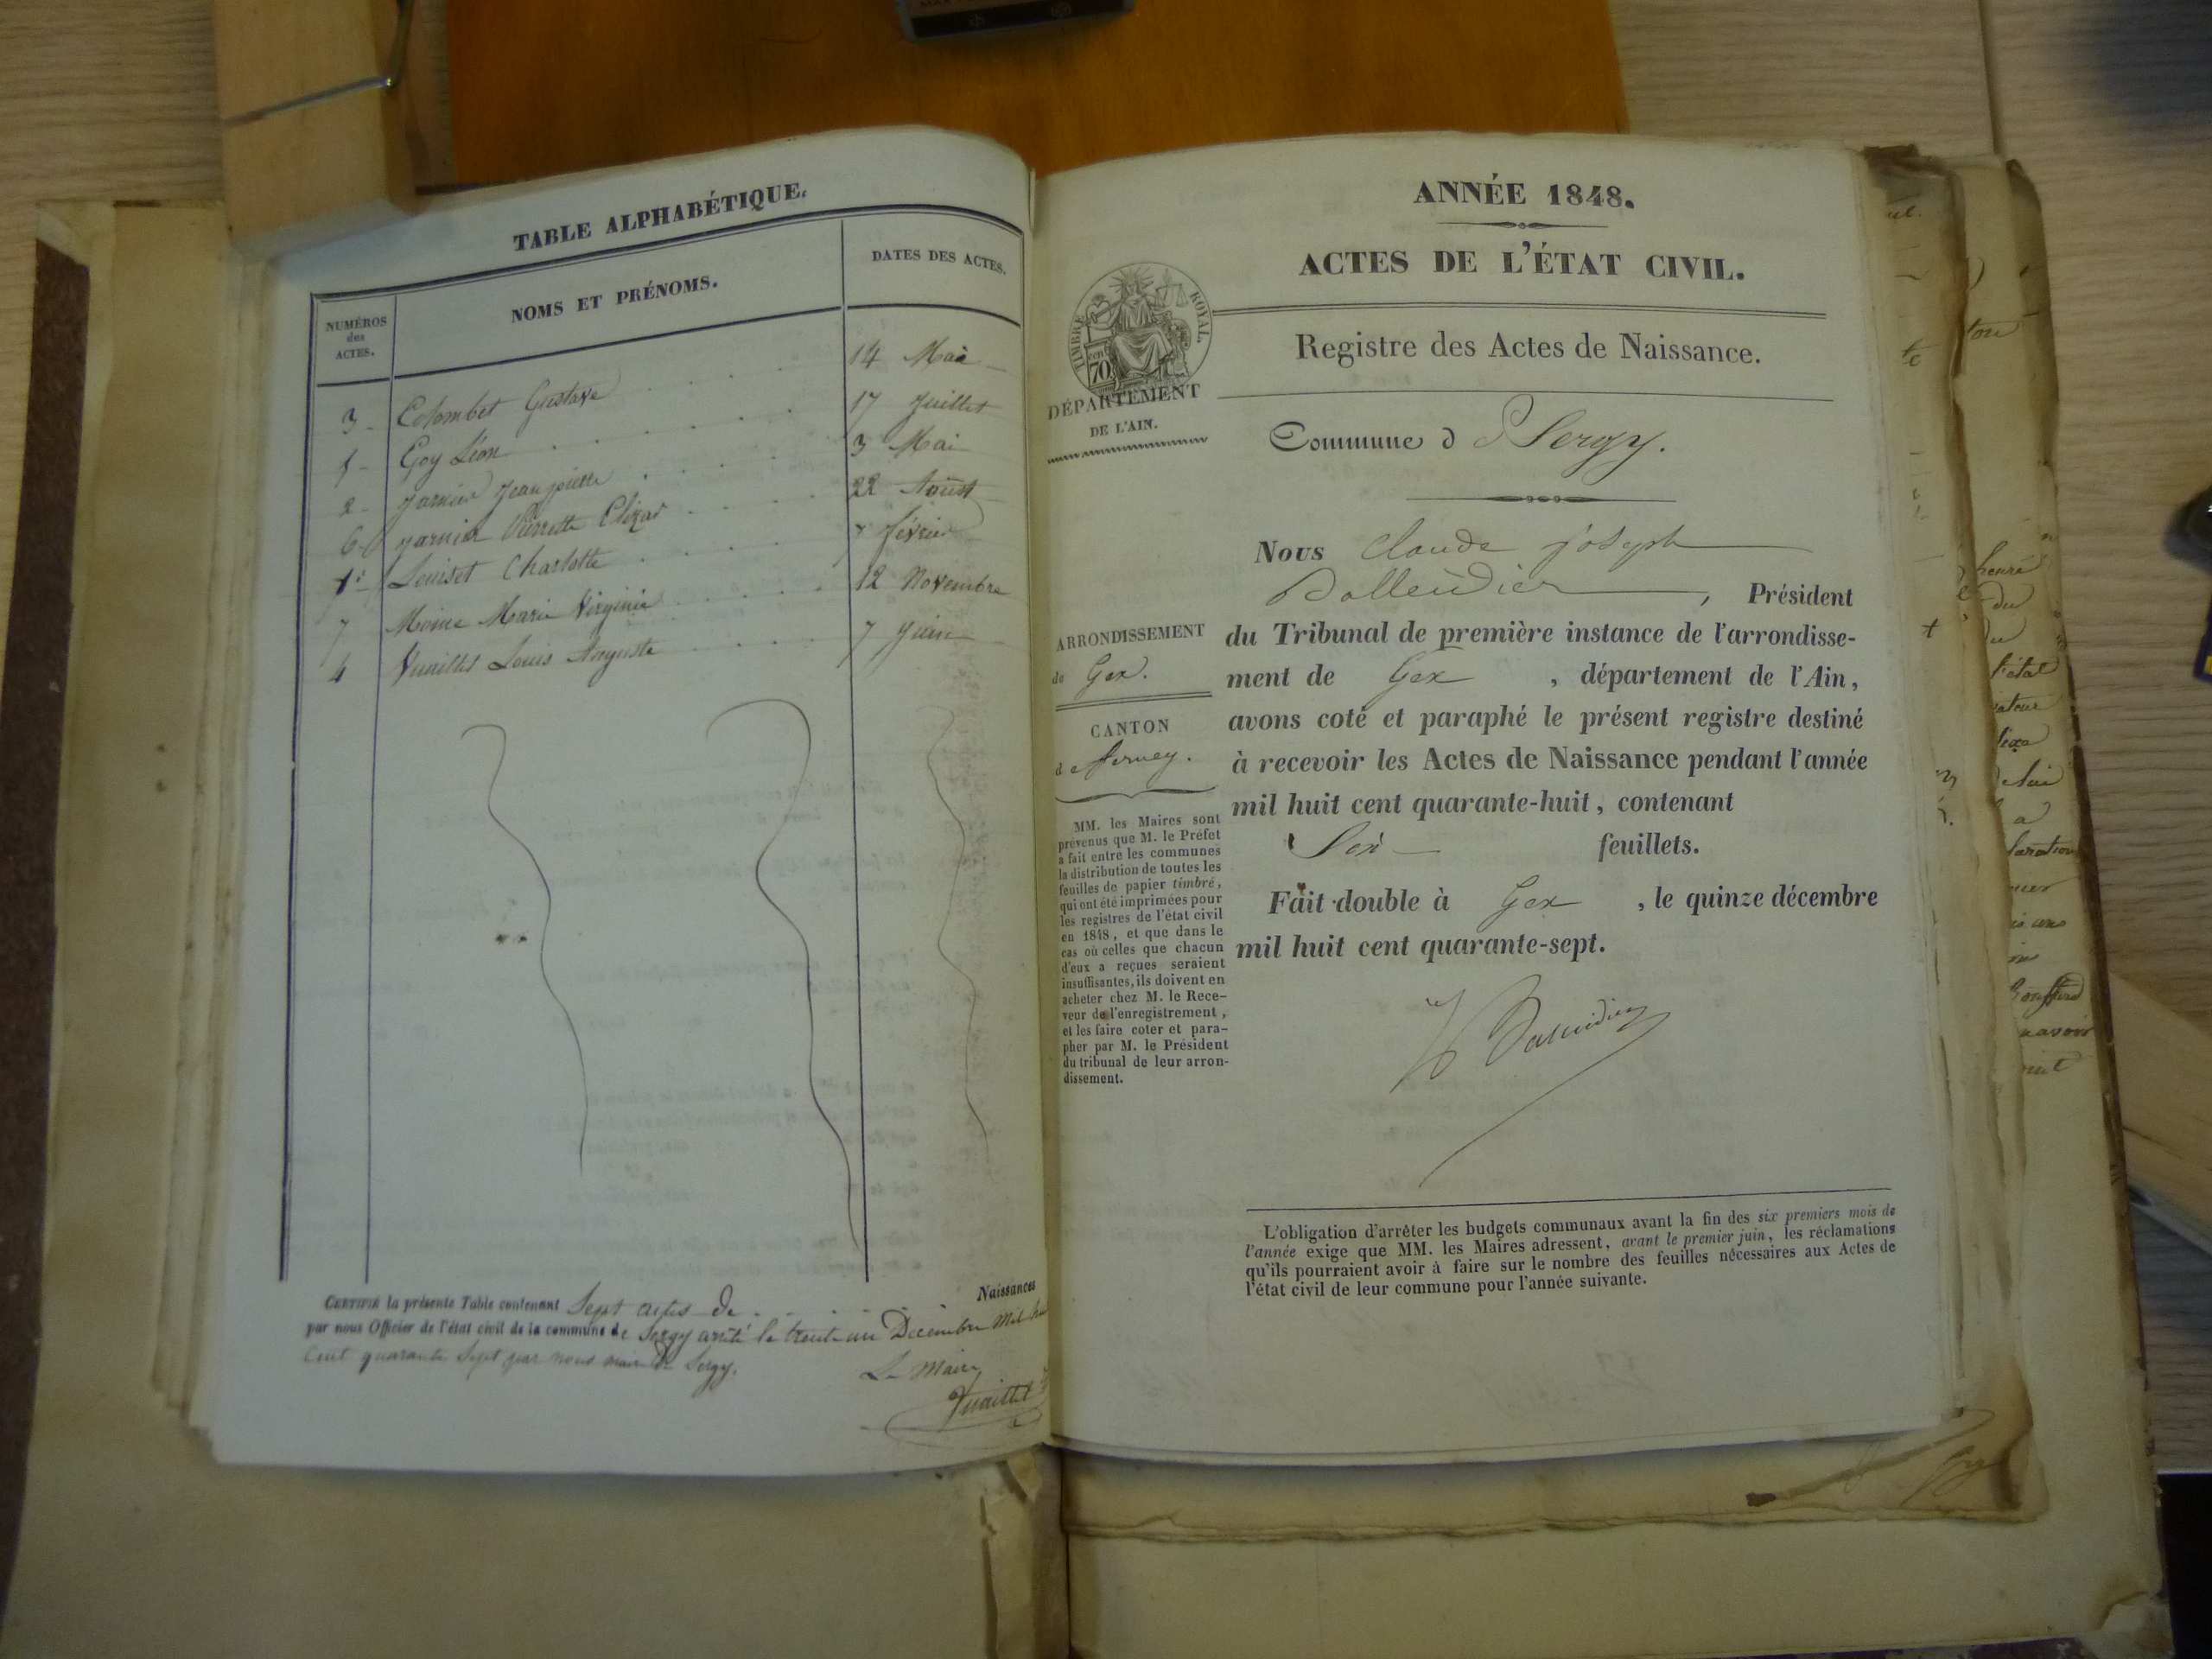 TABLE ALPHABÉTIQUE.
NUMÉROS
des
ACTES.
NOMS ET PRÉNOMS.
DATES DES ACTES.
3 Colombet Gustave 14 Mai
Goy Léon 17 Juillet
2 Jean pierre 3 Mai
6 Pierrette 22 Aoust
1 Louiset Charlotte février
7 Moine Marie Virginie 12 Novembre
4 Vuaillet Louis Auguste 7 Juin
CERTIFIÉ la présente Table contenant Sept actes de Naissances
par nous Officier de l'état civil de la commune de Sergy arrêté le trente un Decembre Mil
Cent quarante Sept par nous maire de Sergy.
Le Maire
Vuaillet
ANNÉE 1848.
ACTES DE L'ÉTAT CIVIL.
TIMBRE ROYAL.
70
Registre des Actes de Naissance.
DÉPARTEMENT
DE L'AIN.
Commune d Sergy.
Nous Claude joseph
, Président
du Tribunal de première instance de l'arrondisse-
ment de Gex , département de l'Ain,
avons coté et paraphé le présent registre destiné
à recevoir les Actes de Naissance pendant l'année
mil huit cent quarante-huit, contenant
Six feuillets.
Fait double à Gex , le quinze décembre
mil huit cent quarante-sept.
ARRONDISSEMENT
de Gex.
CANTON
de ferney.
MM. les Maires sont
prévenus que M. le Préfet
a fait entre les communes
la distribution de toutes les
feuilles de papier timbré,
qui ont été imprimées pour
les registres de l'état civil
en 1848, et que dans le
cas où celles que chacun
d'eux a reçues seraient
insuffisantes, ils doivent en
acheter chez M. le Rece-
veur de l'enregistrement,
et les faire coter et para-
pher par M. le Président
du tribunal de leur arron-
dissement.
L'obligation d'arrêter les budgets communaux avant la fin des six premiers mois de
l'année exige que MM. les Maires adressent, avant le premier juin, les réclamations
qu'ils pourraient avoir à faire sur le nombre des feuilles nécessaires aux Actes de
l'état civil de leur commune pour l'année suivante.